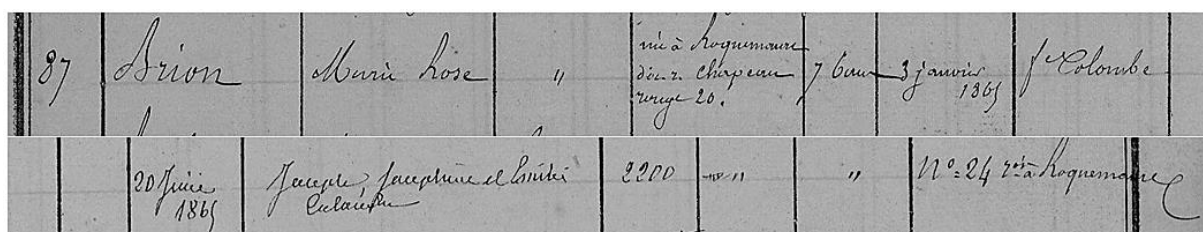 87 Brion Marie Rose " née à Roquemaure
déc. r. Chapeau
rouge 20. 76 ans 3 janvier
1865 fe Colombe
20 Juin
1865 Joseph, Josephine et
2200 " " N° 24 à Roquemaure